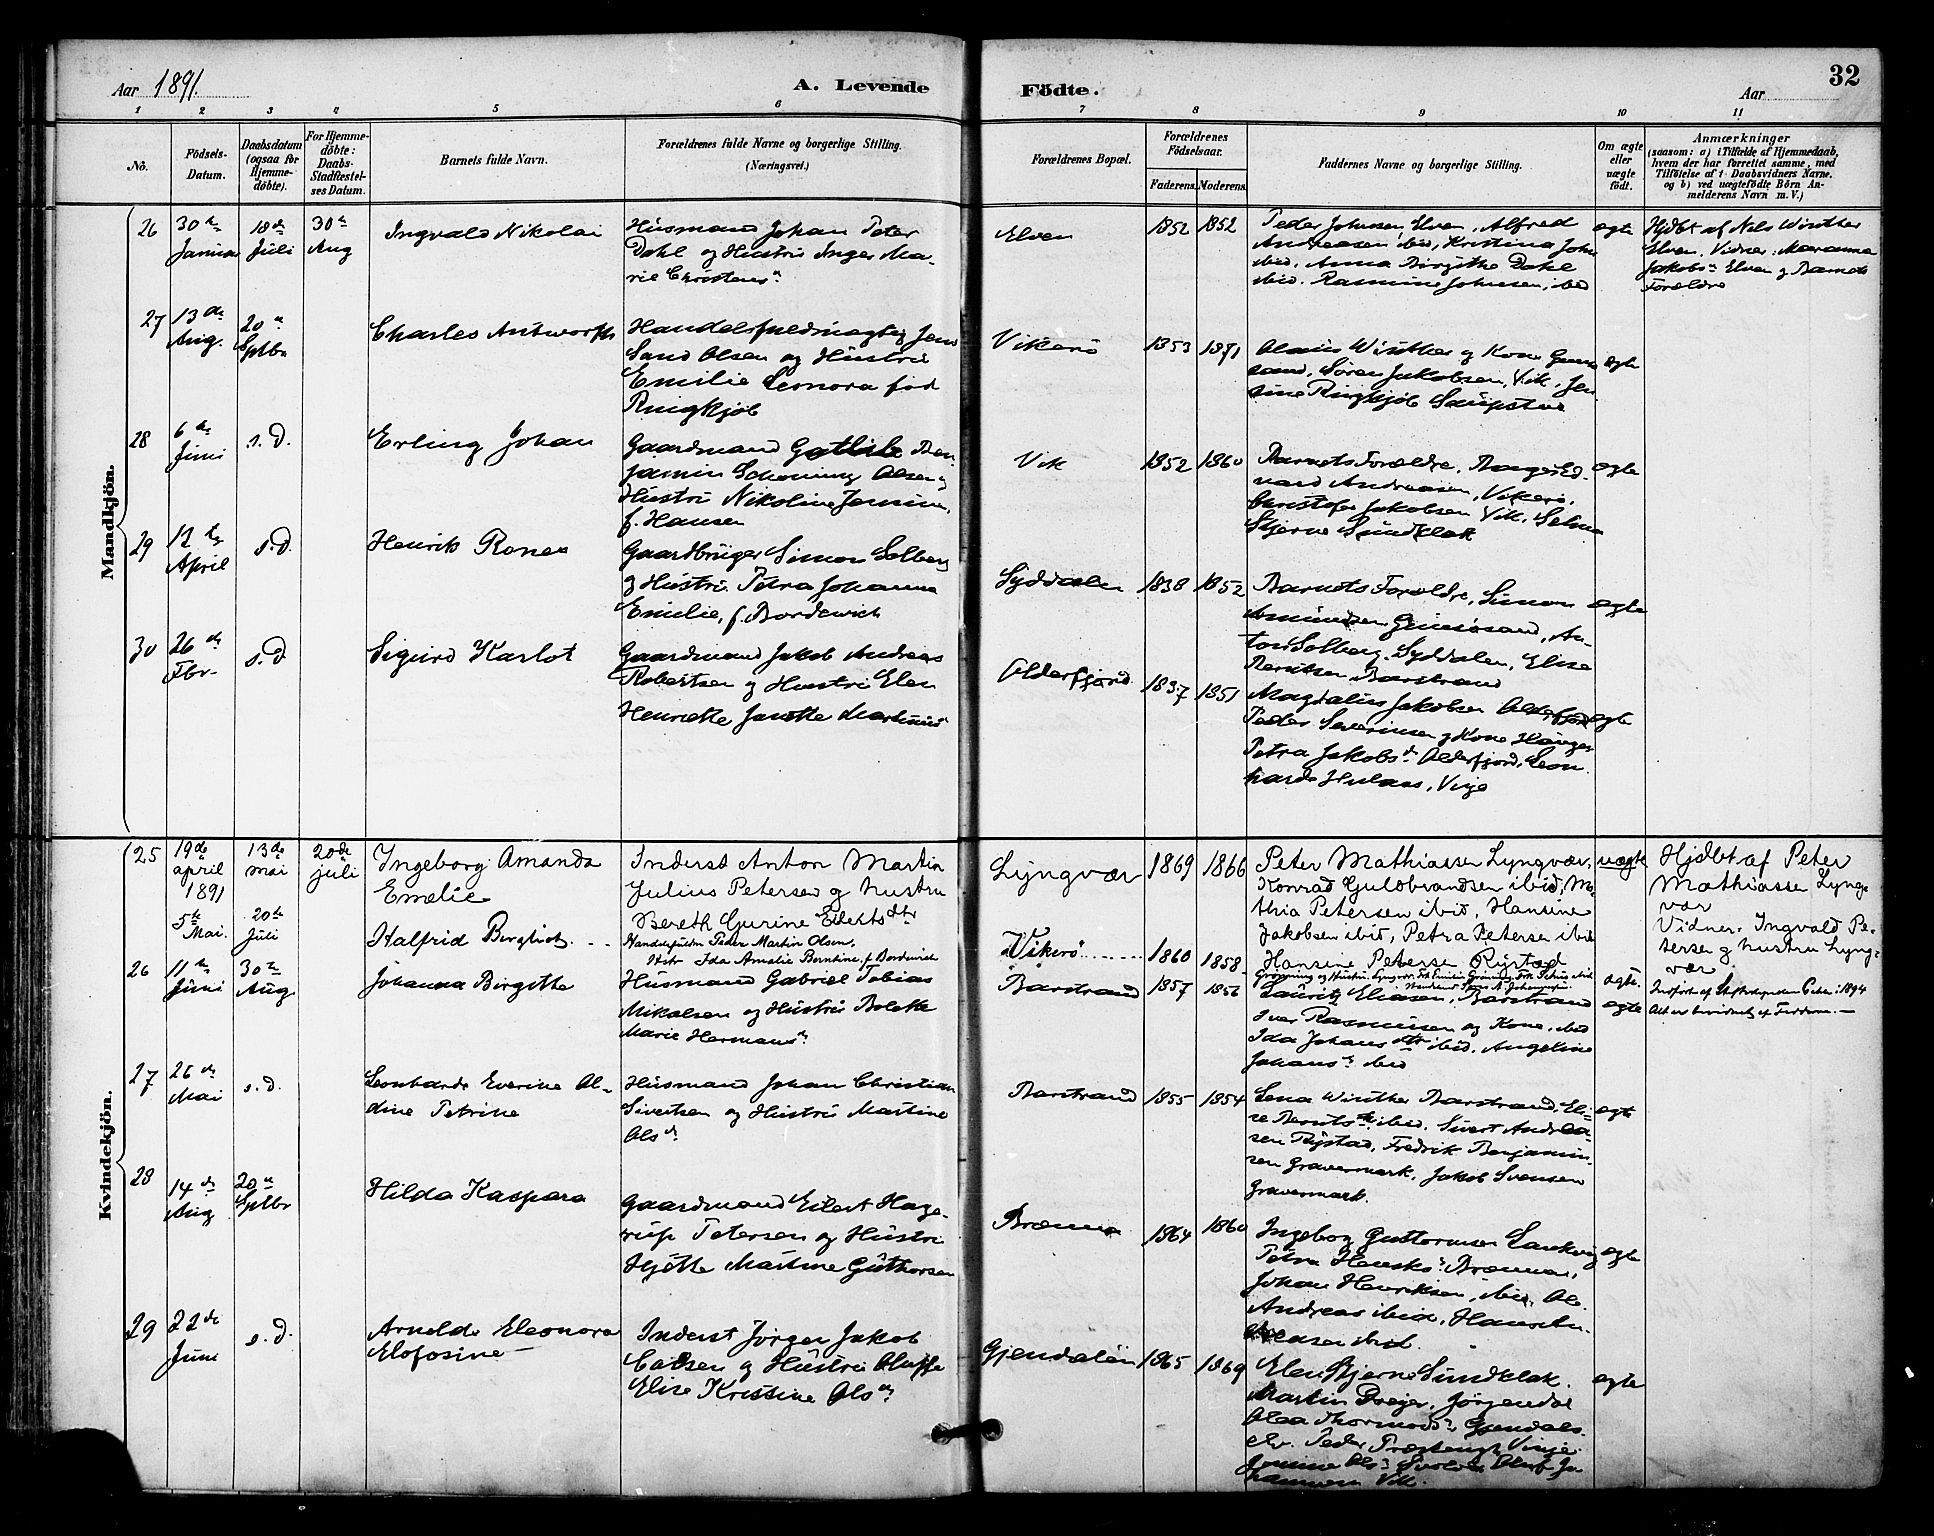 32
Aar 1891. A. Levende Födte. Aar
1 2 3 4 5 6 7 8 9 10 11
No. Födsels-Datum. Daabsdatum (ogsaa for Hjemmedöbte). For Hjemmedöbte: Daabs-Stadfæstelses Datum. Barnets fulde Navn. Forældrenes fulde Navne og borgerlige Stilling. (Næringsvei.)
Forældrenes Bopæl. Forældrenes Födselsaar. Faderens. Moderens. Faddernes Navne og borgerlige Stilling. Om ægte eller uægte födt. Anmærkninger (saasom: a) i Tilfælde af Hjemmedaab, hvem der har forrettet samme, med Tilföielse af 2 Daabsvidners Navne, og b) ved uægtefödte Börn Anmelderens Navn m. V.)
Mandkjön.
26 30te Januar 18de Juli 30te Aug Ingvald Nikolai
Husmand Johan Peter
Dahl og Hustru Inger Ma-
rie Christens
Elven 1852 1852
Peder Johnsen, Elven, Alfred
Andreasen ibid, Kristina John
ibid, Anna Birgithe Dahl
ibid. Rasmine Johnsen, ibid
ægte
Hjdbt af Nels Winther
Elven. Vidner: Maranna
Jakobs Elven og Barnets
Forældre
27 13de Aug. 20de Sptbr Charles Antworth
Handelsfuldmægtig Jens
Sand Olsen og Hustru
Emilie Leonora fød
Ringkjøb
Vikerö 1853 1871
Olaus Winther og Kone
sand, Søren Jakobsen, Vik, Jen
sine Ringkjöb
ægte
28 6te Juni s.d. Erling Johan
Gaardmand Gotlieb Ben-
jamin Schøning Olsen og
Hustru Nikoline Jensine,
f. Hansen
Vik 1852 1860
Barnets Forældre, Ed-
vard Andreasen, Vikerö,
Christofer Jakobsen Vik, Selma
Stjerne Sundklak
ægte
29 12te April s.d. Henrik Roner
Gaardbruger Simon Solberg
og Hustru Petra Johanna
Emilie, f. Bordewich
Syddalen 1838 1852
Barnets Forældre, Simon
Amundsen Gimsösand, An-
ton Solberg, Syddalen, Elise
Berntsen Barstrand
ægte
30 26de Fbr. s.d. Sigurd Karlot
Gaardmand Jakob Andreas
Robertsen og Hustru Elen
Henrikke Janette Martinus
Olderfjord 1837 1851
Magdalius Jakobsen Olderfjord
Peder Severinsen og Kone
Petra Jakobs Olderfjord, Leon
harda Hulaas, Vinje
ægte
Kvindekjön.
25 19de april 1891 13de mai 20de juli Ingeborg Amanda
Emelie
Inderst Anton Martin
Julius Petersen og hustru
Bereth Gurine Eilerts dtr
Lyngvær 1869 1866
Peter Mathiassen Lyngvær,
Konrad Guldbrandsen ibid, Ma-
thia Petersen ibid, Hansine
Jakobsen ibid, Petra Petersen ibid
Hansine Petersen Rystad
uægte
Hjdbt af Peter
Mathiassen Lyng-
vær
Vidner. Ingvald Pe-
tersen og hustru Lyng-
vær
5te Mai. 20de Juli Halfrid Bergliot
Handelsfuldm Peder Martin Olsen,
Hstr Ida Amalie Berntine f. Bordewich
Vikerö 1860 1858
Grönning og Hustru, Lyngvær
ægte.
Indført af Stiftsdirektionen
26 11te Juni 30te Aug Johanna Birgitte
Husmand Gabriel Tobias
Mikalsen og Hustru Bolette
Marie Hermans
Barstrand 1857 1856
Lauritz Eliasen, Barstrand
Iver Rasmussen og Kone, ibid
Ida Johans dtr ibid, Angeline
Johans ibid
ægte
27 26de Mai s.d. Leonharda Everine Al-
dine Petrine
Husmand Johan Christian
Sivertsen og Hustru Martine
Olsd
Barstrand 1855 1854
Lena Winther Barstrand, Eli-
se Bernts ibid, Sivert Andrea-
sen Rystad, Fredrik Benjamin-
sen Gravermark, Jakob Svensen
Gravermark.
ægte
28 14de Aug 20de Sptbr Hilda Kaspara
Gaardmand Eilert Hage-
rup Petersen og Hustru
Hjötte Martine Guthorsen
Brænna 1864 1860
Ingebog Guttormsen
Petra Henriks Brænna,
Johan Henriksen, ibid, Ole
Andreas ibid, Hans An-
dreasen ibid.
ægte
29 22de Juni s.d. Arnelde Eleonora
Elofosine
Inderst Jörgen Jakob
Carlsen og Hustru Oluffa
Elise Kristine Olsd
Gjendalen 1865 1869
Elen Stjerne Sundklak.
Martin Dreyer, Jörgendal
Olea Thormods Gjendals-
elv. Peder Præsteng Vinje
Vik.
ægte